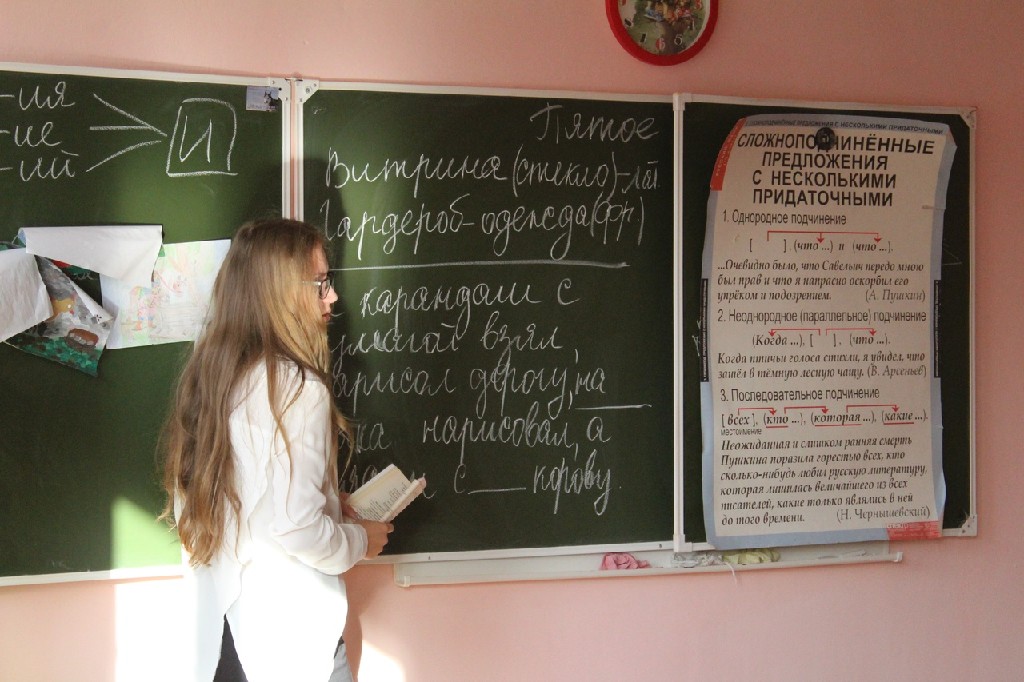 -ия
-ие
-ий
И
Пятое
Витрина (стекло)-лат.
Гардероб-одежда(фр)
карандаш с
взял
дорогу, на
нарисовал, а
с___ корову.
СЛОЖНОПОДЧИНЁННЫЕ
ПРЕДЛОЖЕНИЯ
С НЕСКОЛЬКИМИ
ПРИДАТОЧНЫМИ
1. Однородное подчинение
[ ], (что ...) и (что ...).
...Очевидно было, что Савельич передо мною
был прав и что я напрасно оскорбил его
упрёком и подозрением. (А. Пушкин)
2. Неоднородное (параллельное) подчинение
(Когда ...), [ ], (что ...).
Когда птичьи голоса стихли, я увидел, что
зашёл в тёмную лесную чащу. (В. Арсеньев)
3. Последовательное подчинение
[ всех ], (кто ...), (которая ...), (какие ...).
местоимение
Неожиданная и слишком ранняя смерть
Пушкина поразила горестью всех, кто
сколько-нибудь любил русскую литературу,
которая лишилась величайшего из всех
писателей, какие только являлись в ней
до того времени. (Н. Чернышевский)